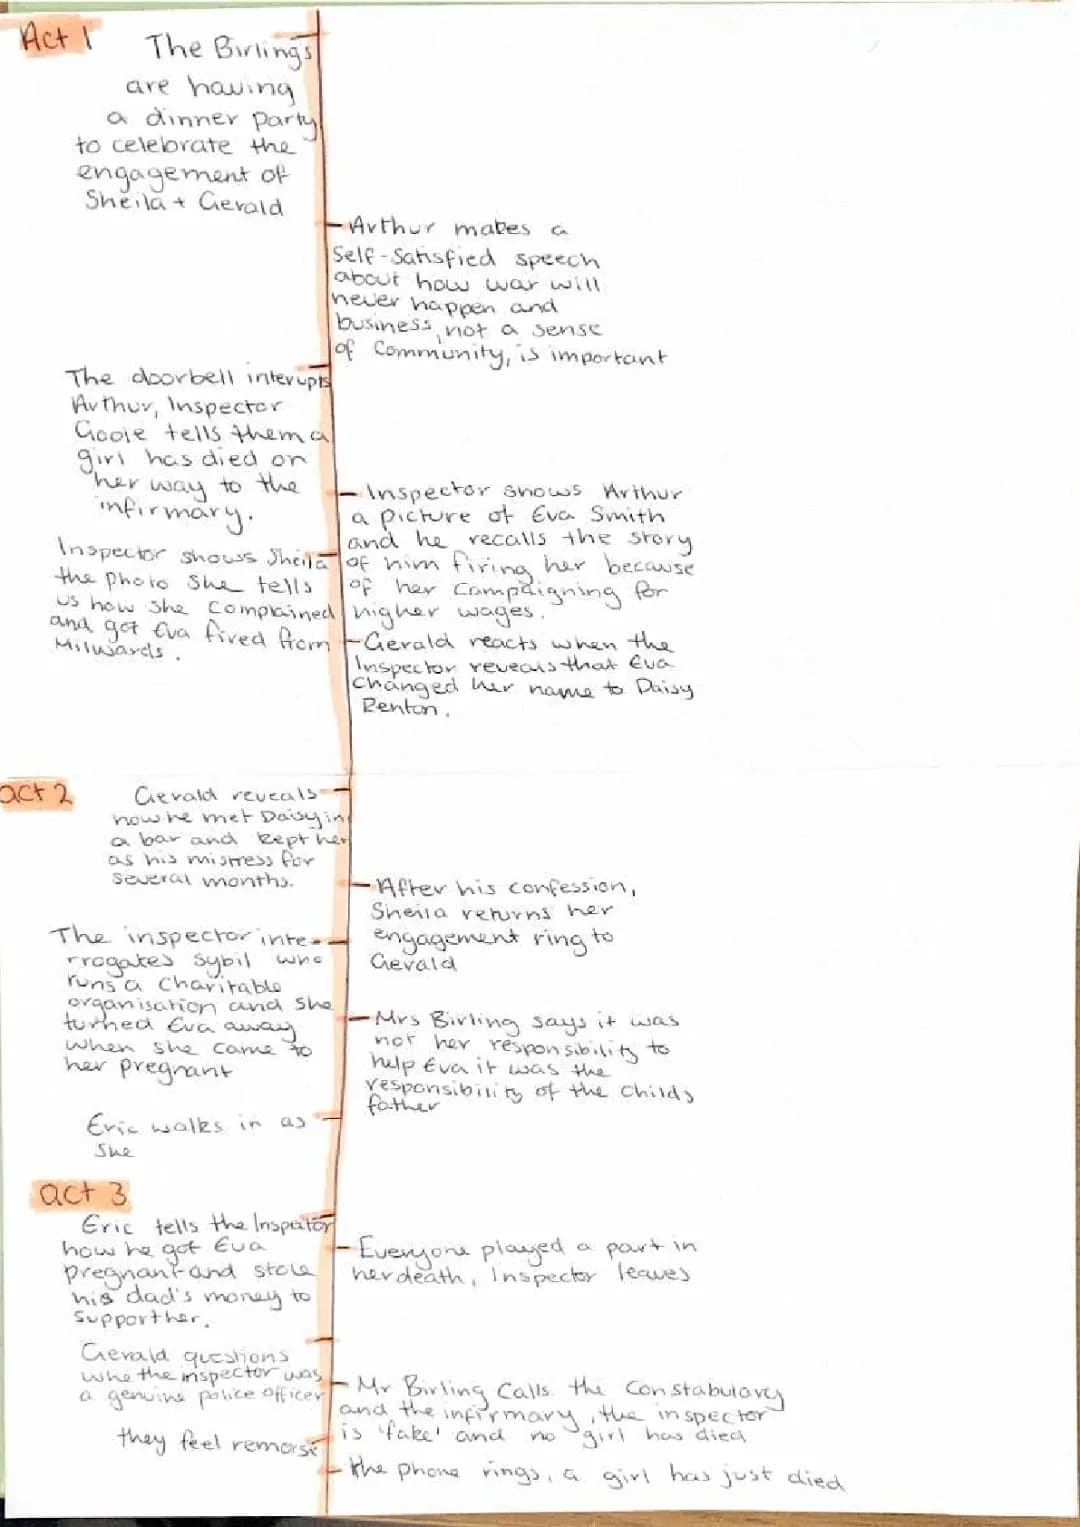 Act 1
The Birlings
are having
a dinner party
to celebrate the
engagement of
Sheila + Gerald
Arthur makes a
self-satisfied speech
about how war will
never happen and
business, not a sense
of community, is important
The doorbell interupts
Arthur, Inspector
Goole tells them a
girl has died on
her way to the
infirmary.
Inspector shows Arthur
a picture of Eva Smith
and he recalls the story
of him firing her because
of her campaigning for
higher wages.
Inspector shows Sheila
the photo she tells
us how she complained
and got Eva fired from
Milwards.
Gerald reacts when the
Inspector reveals that Eva
changed her name to Daisy
Renton.
act 2
Gerald reveals
how he met Daisy in
a bar and kept her
as his mistress for
several months.
After his confession,
Sheila returns her
engagement ring to
Gerald
The inspector inte-
rrogates Sybil who
runs a charitable
organisation and she
turned Eva away
when she came to
her pregnant
Mrs Birling says it was
not her responsibility to
help Eva it was the
responsibility of the childs
father
Eric walks in as
she
act 3
Eric tells the Inspector
how he got Eva
pregnant and stole
his dad's money to
support her.
Everyone played a part in
her death, Inspector leaves
Gerald questions
whe the inspector was
a genuine police officer
Mr Birling calls the constabulary
and the infirmary, the inspector
is 'fake' and no girl has died
they feel remorse
the phone rings, a girl has just died